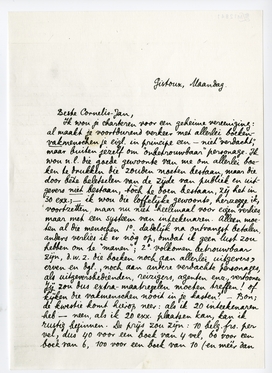 Gistoux, Maandag.
Beste Cornelis-Jan,
Ik wou je charteren voor een geheime vereeniging:
al maakt je voortdurend verkeer met allerlei boeken-
vakmenschen je eigl. in principe en — niet verdacht,
maar buiten jezelf om onbetrouwbaar personage. Ik
wou n.l. die goede gewoonte van me om allerlei boe-
ken te drukken die zouden moeten bestaan, maar die
door beletselen van de zijde van publiek en uit-
gevers niet bestaan, toch te doen bestaan, zij het in
30 exx.; — ik wou die loffelijke gewoonte, herzegge ik,
voortzetten, maar nu niet heelemaal voor eigen rekening
maar met een systeem van inteekenaren. Alleen moe-
ten al die menschen 1°. dadelijk na ontvangst betalen,
anders verlies ik er nóg op, omdat ik geen lust zou
hebben om te "manen"; 2° volkomen betrouwbaar
zijn, d.w.z. die boeken noch aan allerlei uitgevers
erven en dgl., noch aan andere verdachte personages
als uitgeversbedienden, reizigers, agenten enz. vertoonen
kijken die vakmenschen nooit in je kasten? — Bon;
de kwestie komt hierop neer: als ik 20 inteekenaren
heb — neen, als ik 20 exx. plaatsen kan, kan ik
rustig beginnen. De prijs zou zijn: 10 belg. frs. per
vel, dus 40 voor een boek van 4 vel, 60 voor een
boek van 6, 100 voor een boek van 10 (en meer dan